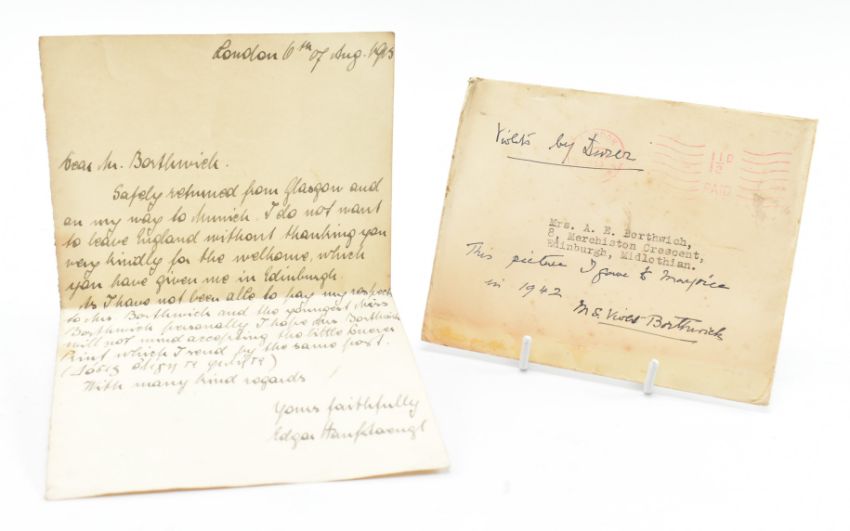 London 6th of Aug. 1913
Dear Mr. Borthwich.
Safely returned from Glasgow and
on my way to Munich. I do not want
to leave England without thanking you
very kindly for the welhome, which
you have given me in Edinburgh.
As I have not been able to pay my respects
to Mrs Borthwich and the youngest Miss
Borthwich personally I hope Mrs Borthwich
will not mind accepting the little Duerer
Print which I send by the same post.
(δόσις ὀλίγη τε φίλη τε)
With many kind regards
Yours faithfully
Edgar Hanfstaengl
Violets by Durer
PAID
Mrs. A. E. Borthwich,
8, Merchiston Crescent,
Edinburgh, Midlothian.
This picture I gave to
in 1942
Borthwick